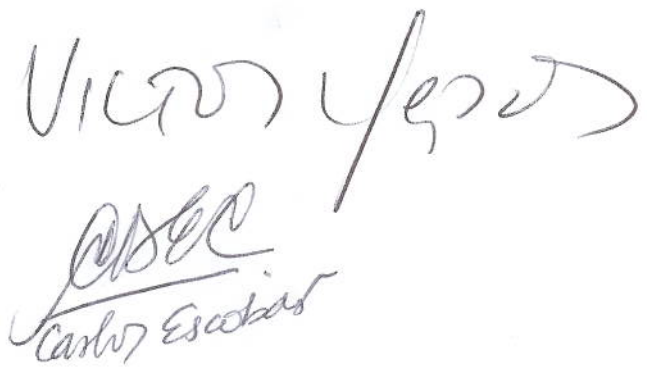 VICTOR
CDEC
Carlos Escobar